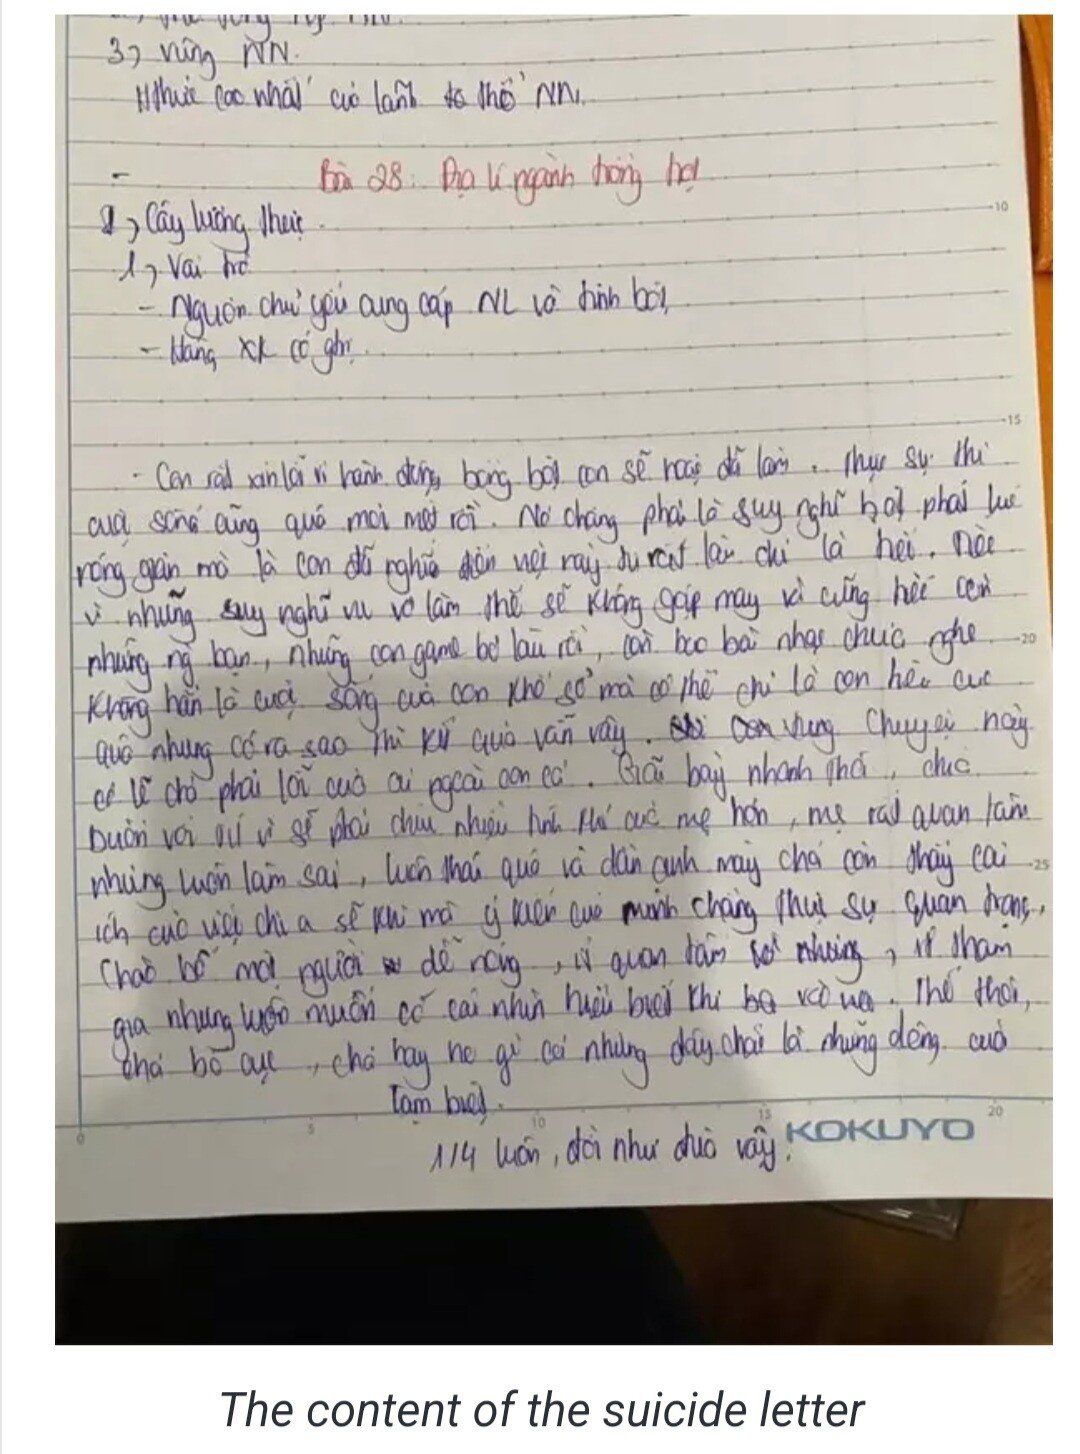 3, vùng NN.
Hthức cao nhất của lãnh thổ NN.
-
Bài 28: Địa lí ngành trồng trọt
I, Cây lương thực.
1, Vai trò
- Nguồn chủ yếu cung cấp NL và tinh bột
- Hàng XK có gtrị.
10
15
- Con rất xin lỗi vì hành động bồng bột con sẽ hoặc đã làm. Thực sự thì
cuộc sống cũng quá mỏi mệt rồi. Nó chẳng phải là suy nghĩ bột phát lúc
nóng giận mà là con đã nghĩ đến việc này từ rất lâu chỉ là
vì những suy nghĩ vu vơ làm thế sẽ không gặp may và cũng còn
những ng bạn, những con game bỏ lâu rồi, còn bao bài nhạc chưa nghe
20
Không hẳn là cuộc sống của con khổ sở mà có thể chỉ là con tiêu cực
quá nhưng có ra sao thì kết quả vẫn vậy. con nghĩ chuyện này
có lẽ chả phải lỗi của ai ngoài con cả. Giãi bày nhanh thôi, chắc
buồn với sự vì sẽ phải chịu nhiều tính khí của mẹ hơn, mẹ rất quan tâm
nhưng luôn làm sai, luôn thái quá và dần anh mày chả còn thấy cái
25
ích của việc chia sẻ khi mà ý kiến của mình chẳng thực sự quan trọng.
Chào bố một người dễ nóng, ít quan tâm nhưng, ít tham
gia nhưng luôn muốn có cái nhìn hiểu biết khi ba vỡ ra. Thế thôi,
chả bố cục, chả hay ho gì coi như đây chỉ là những dòng của
tạm biệt.
0 5 10 15 20
KOKUYO
1/4 luôn, đời như đùa vậy.
The content of the suicide letter